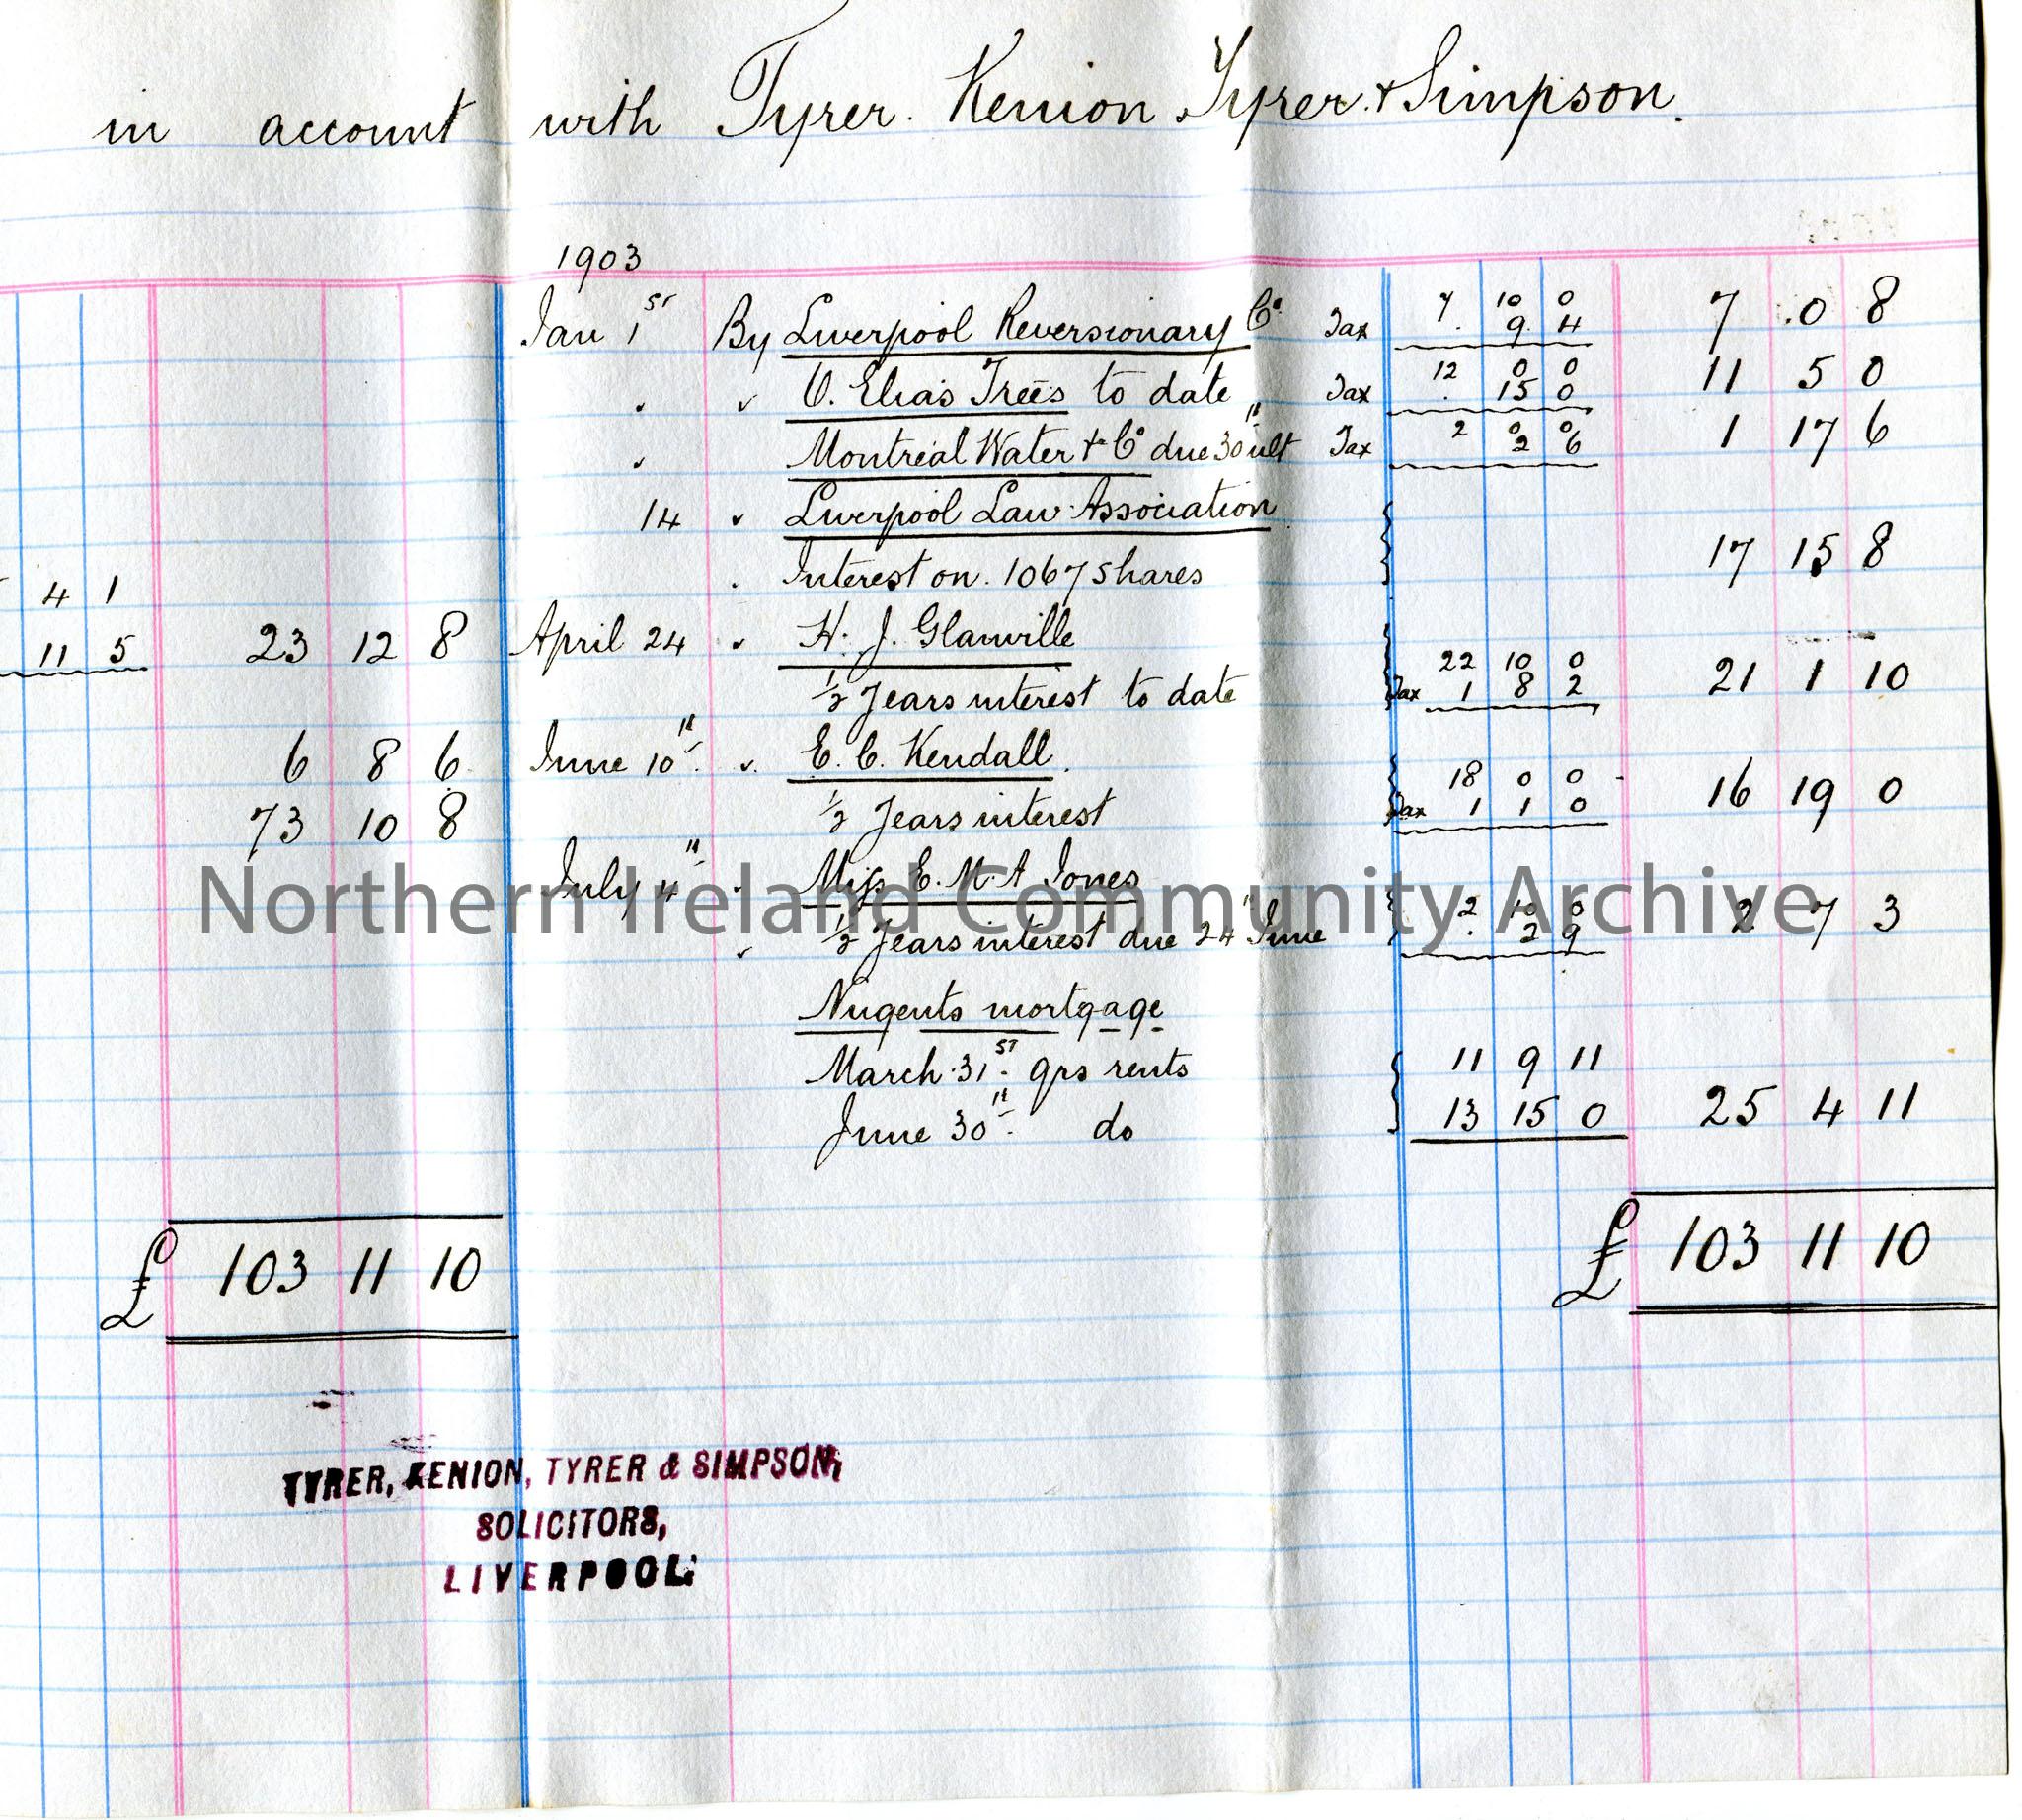 in account with Tyrer. Kenion Tyrer. & Simpson.
1903
Jan 1st By Liverpool Reversionary Co. Tax 7 10 0 7 . 0 8
. 9 4
O. Elias Trees to date Tax 12 0 0 11 5 0
. 15 0
Montreal Water & Co due 30th ult Tax 2 0 0 1 17 6
2 6
14 Liverpool Law Association
Interest on 1067 shares 17 15 8
4 1
11 5 23 12 8 April 24 H. J. Glanville
22 10 0 21 1 10
½ Years interest to date Tax 1 8 2
6 8 6 June 10th E. C. Kendall
18 0 0 16 19 0
73 10 8 ½ Years interest Tax 1 1 0
July 4th Miss E. M. A Jones
2 10 0 2 7 3
½ Years interest due 24th June . 2 9
Nugents mortgage
March 31st qrs rents 11 9 11
June 30th do 13 15 0 25 4 11
£ 103 11 10 £ 103 11 10
TYRER, KENION, TYRER & SIMPSON,
SOLICITORS,
LIVERPOOL.
Northern Ireland Community Archive